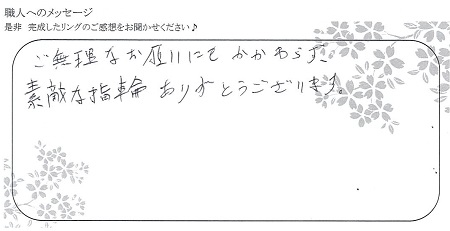 職人へのメッセージ
是非 完成したリングのご感想をお聞かせください♪
ご無理なお願いにもかかわらず、
素敵な指輪ありがとうございます。